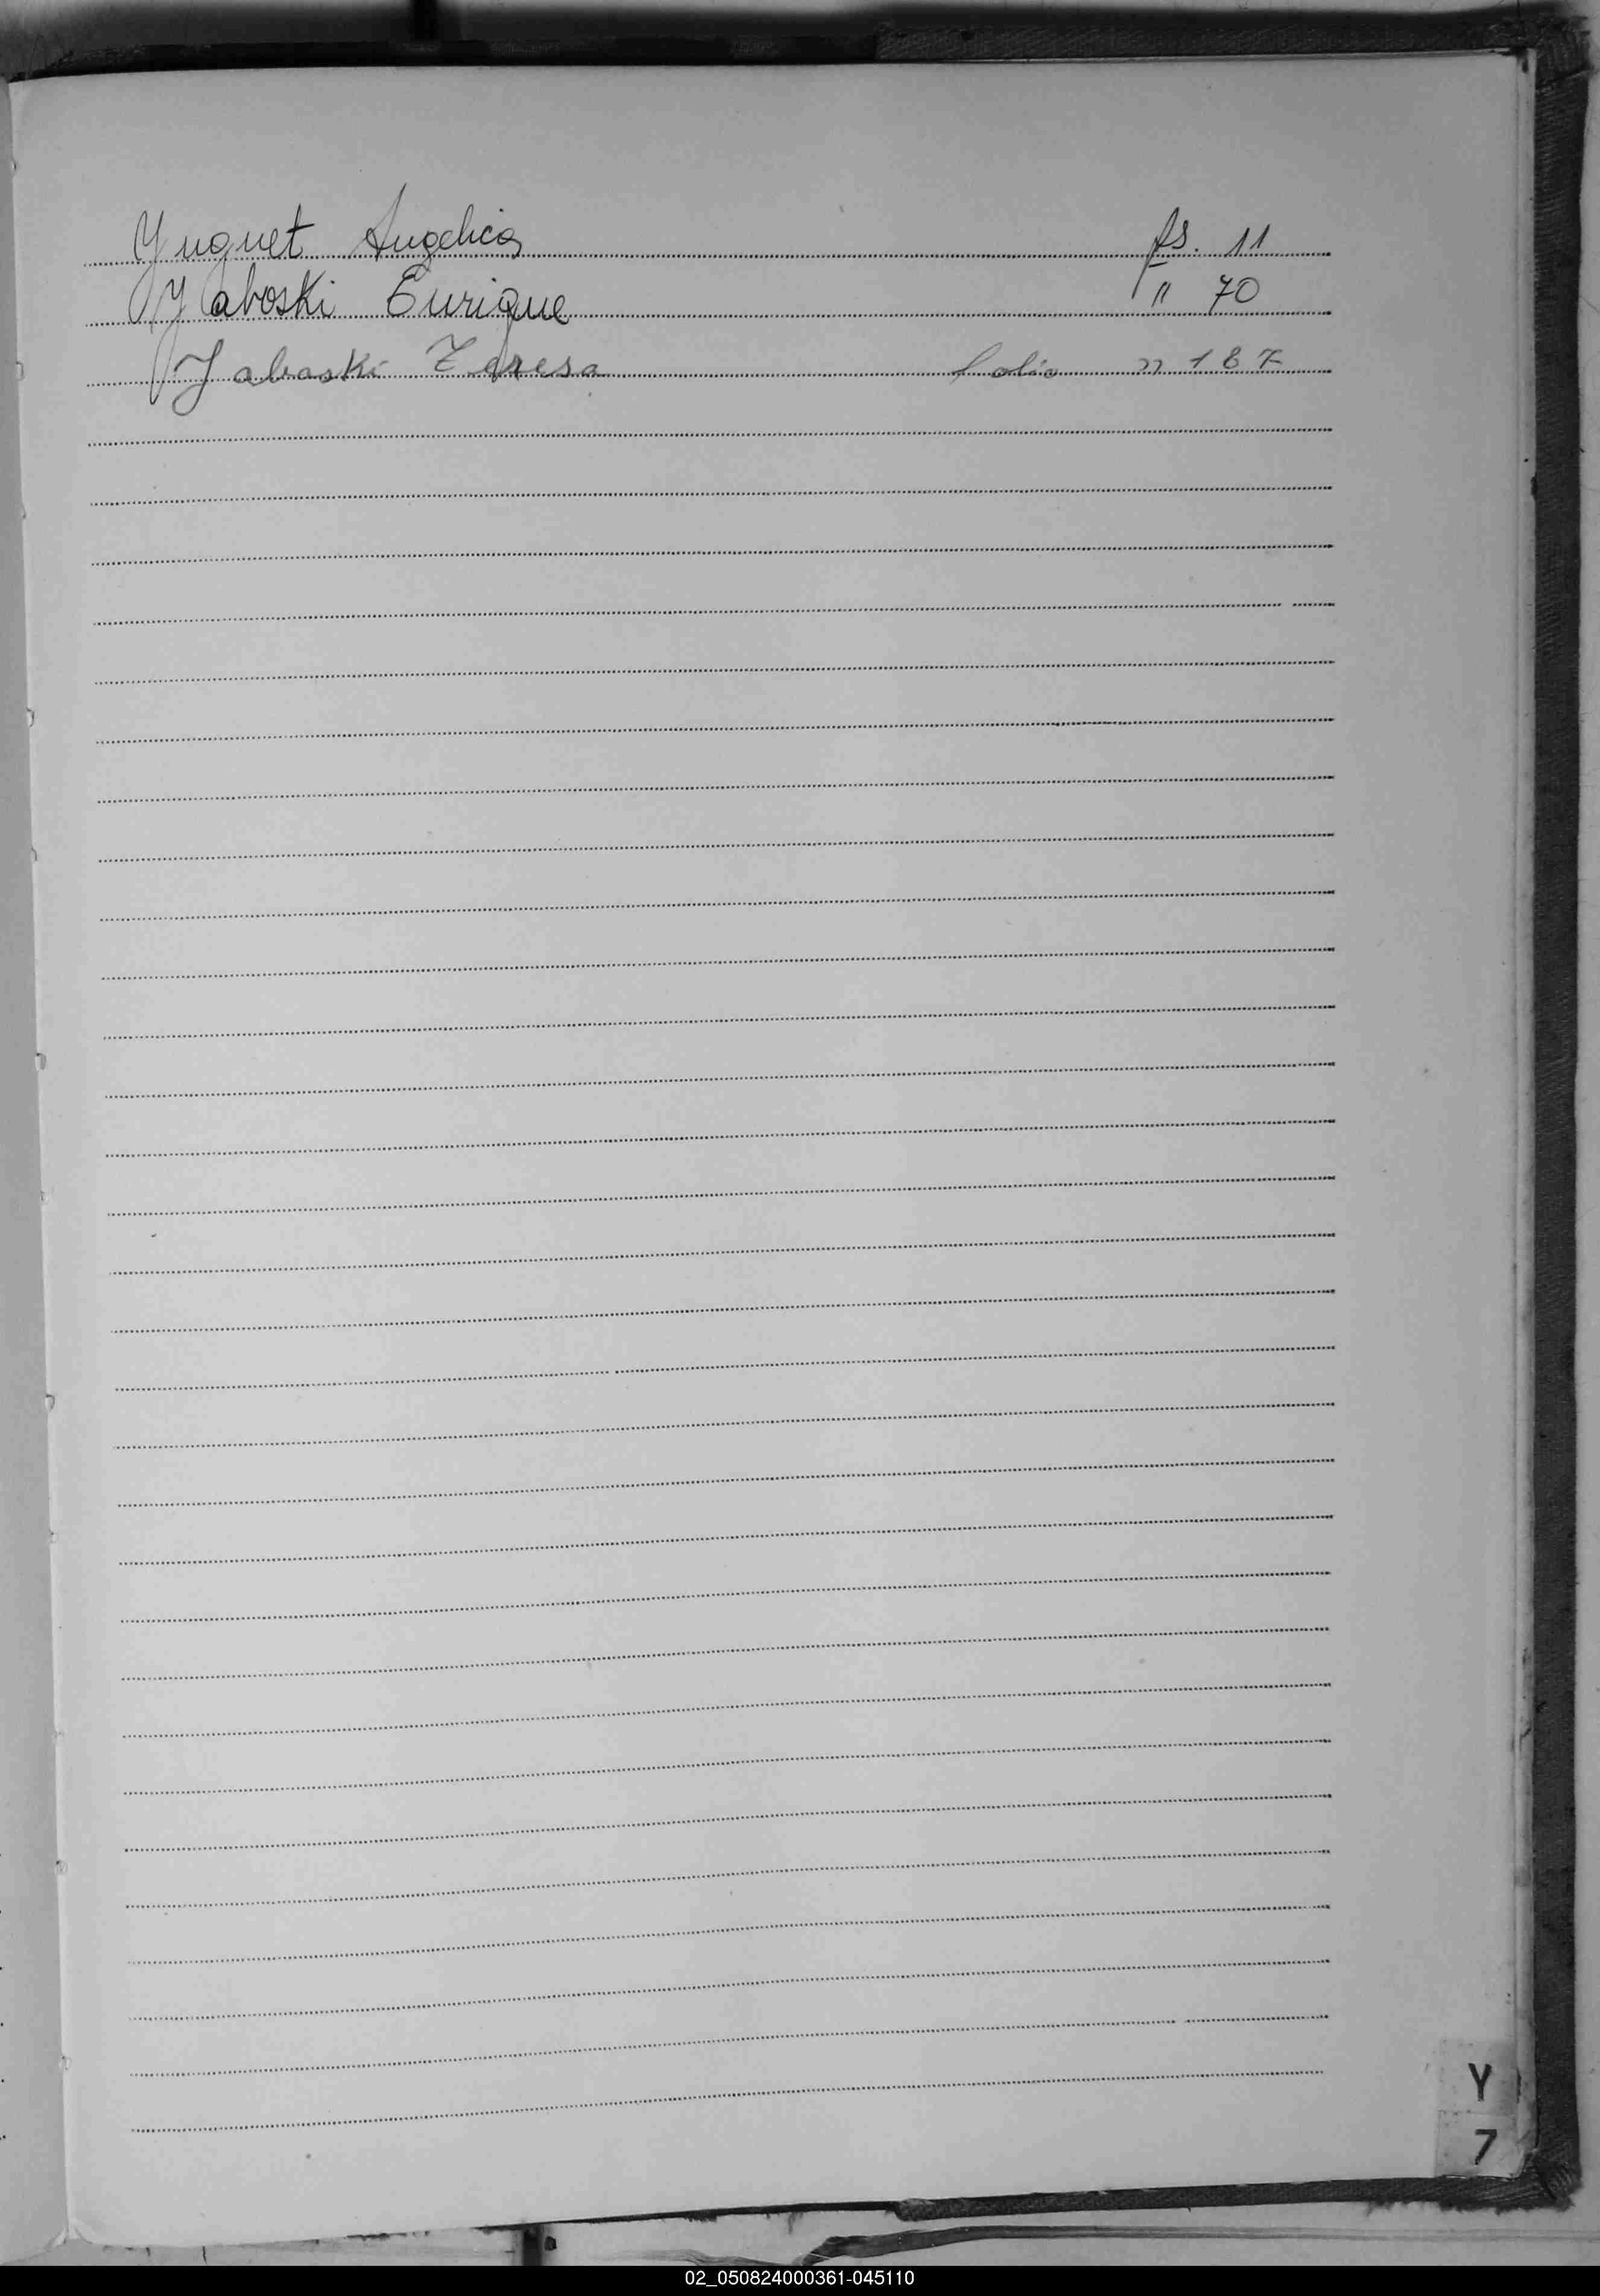 Yuguet Angelica fs. 11
Yaboski Enrique " 70
Yaboski Teresa folio " 187
Y
7
02_050824000361-045110